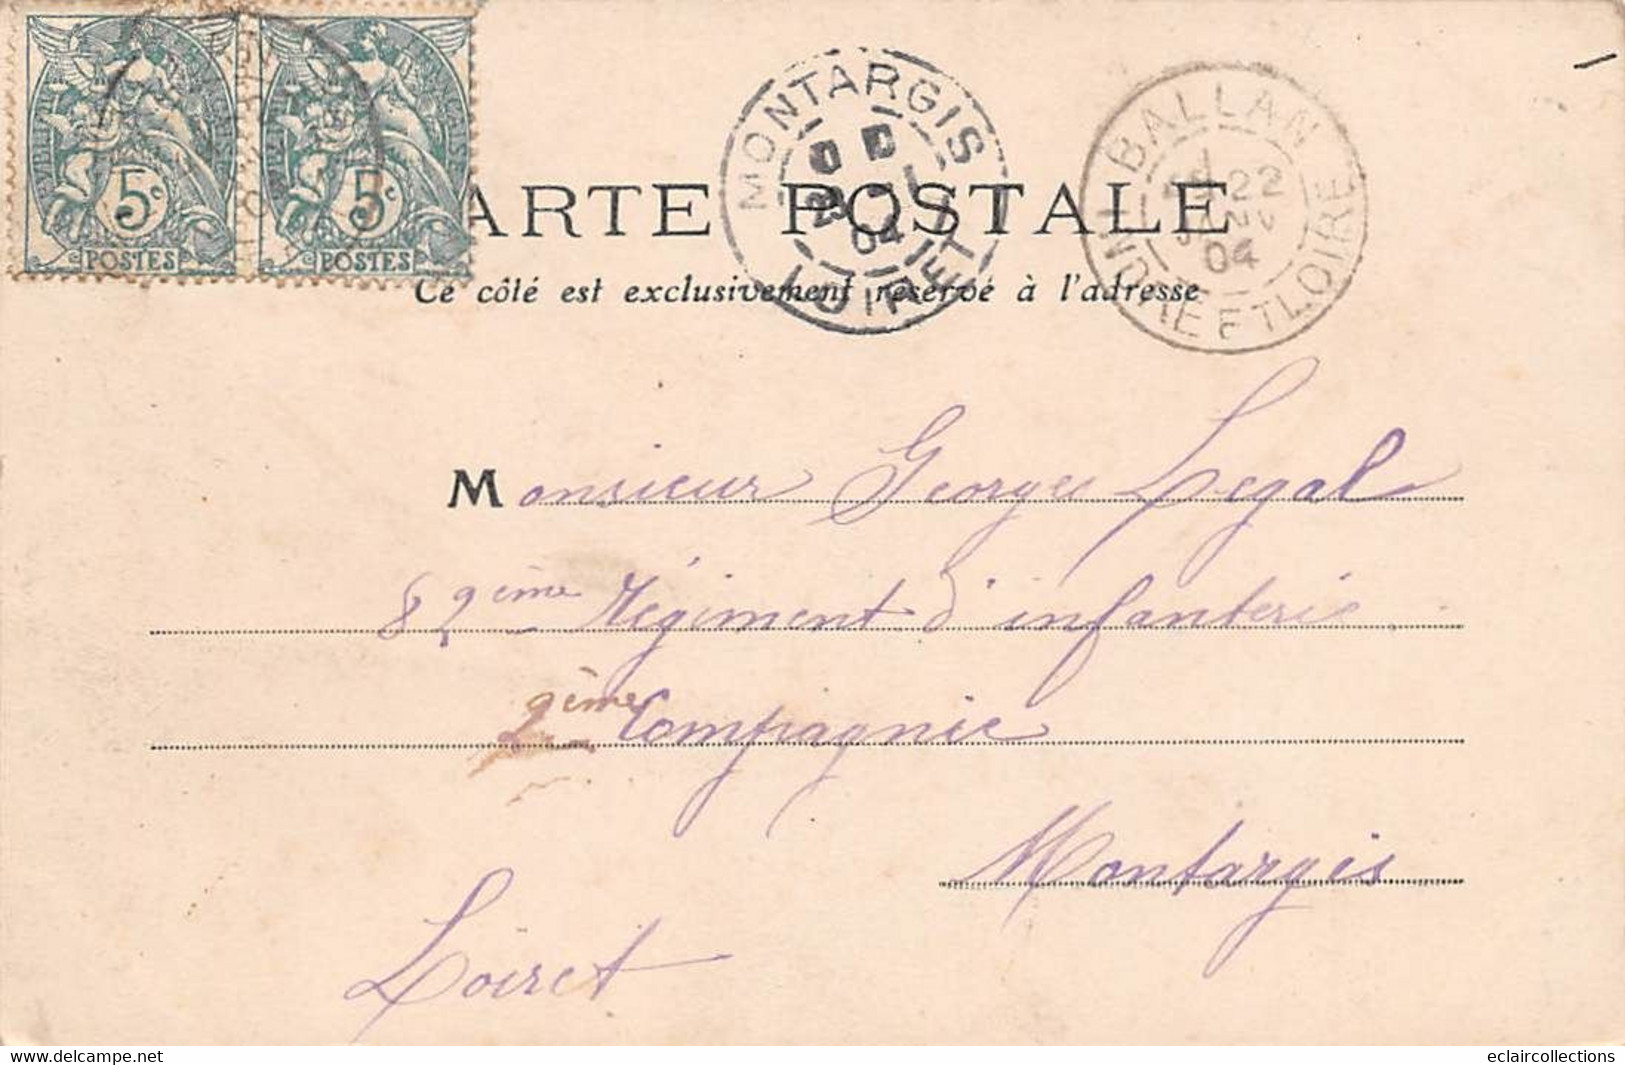 5c
POSTES
5c
POSTES
MONTARGIS
04
LOIRET
BALLAN
22
04
INDRE ET LOIRE
CARTE POSTALE
Ce côté est exclusivement réservé à l'adresse
Monsieur Georges Legal
82ème Régiment d'infanterie
2ème Compagnie
Montargis
Loiret
www.delcampe.net
eclaircollections